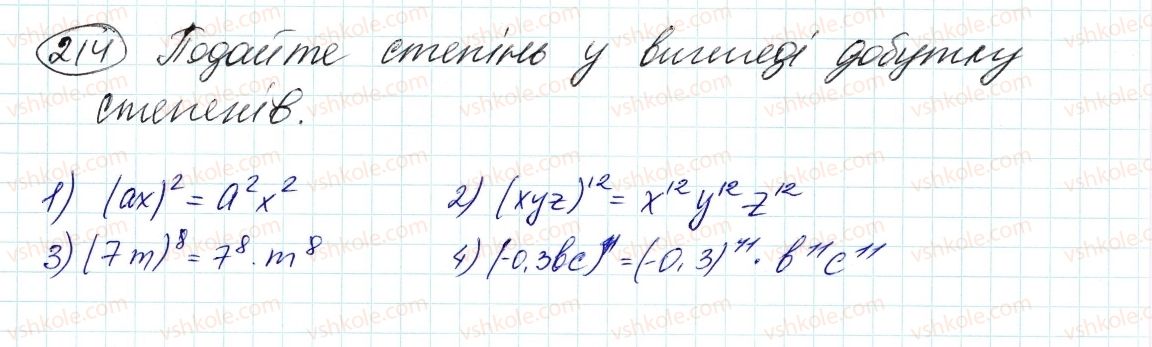 214 Подайте степінь у вигляді добутку
степенів.
1) (ax)² = a²x² 2) (xyz)¹² = x¹²y¹²z¹²
3) (7m)⁸ = 7⁸ · m⁸ 4) (-0,3bc)¹¹ = (-0,3)¹¹ · b¹¹c¹¹